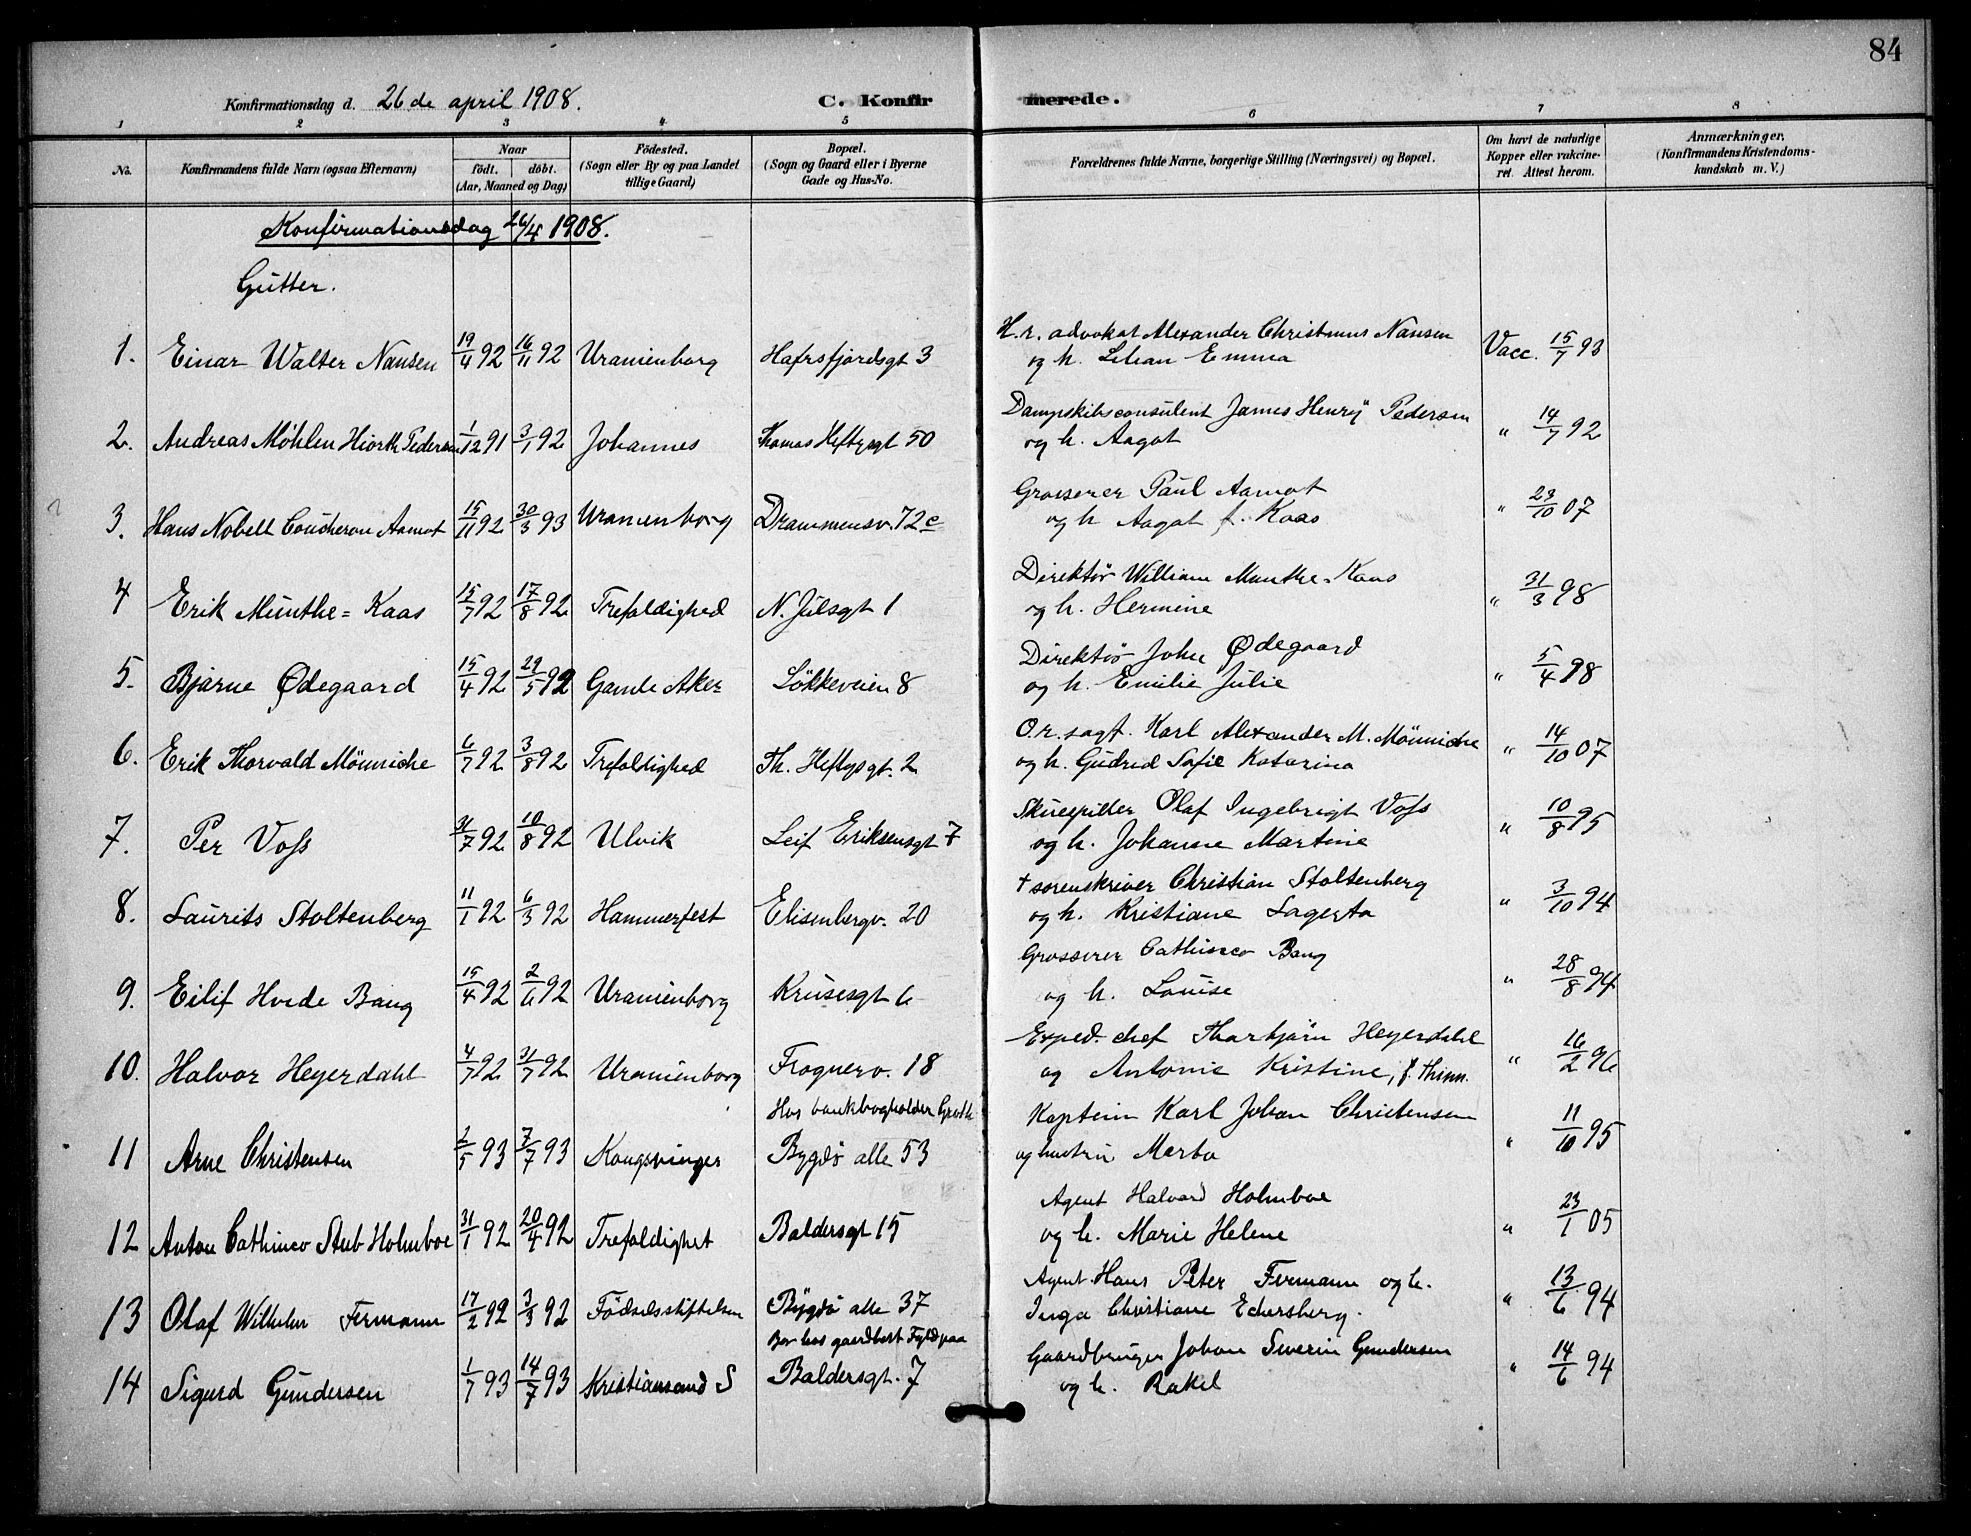 84
Konfirmationsdag d. 26de april 1908. C. Konfirmerede.
1 2 3 4 5 6 7 8
No. Konfirmandens fulde Navn (ogsaa Efternavn) Naar født. døbt. (Aar, Maaned og Dag) Fødested. (Sogn eller By og paa Landet tillige Gaard) Bopæl. (Sogn og Gaard eller i Byerne Gade og Hus-No. Forældrenes fulde Navne, borgerlige Stilling (Næringsvei) og Bopæl. Om havt de naturlige Kopper eller vakcineret. Attest herom. Anmærkninger. (Konfirmandens Kristendomskundskab m. V.)
Konfirmationsdag 26/4 1908.
Gutter.
1. Einar Walter Nansen 19/4 92 16/11 92 Uranienborg Hafrsfjordsgt 3 H.r. advokat Alexander Christmus Nansen
og h. Lilian Emma Vacc. 15/7 93
2. Andreas Møhlen Hiorth Pedersen 1/12 91 3/1 92 Johannes Thomas Heftyesgt 50 Dampskibsconsulent James Henry Pedersen
og h. Aagot " 14/7 92
3. Hans Nobell Coucheron Aamot 15/11 92 30/3 93 Uranienborg Drammensv. 72c Grosserer Paul Aamot
og h Aagot f. Kaas " 23/10 07
4 Erik Munthe=Kaas 15/7 92 17/8 92 Trefoldighed N. Julsgt 1 Direktør William Munthe-Kaas
og h. Hermine " 31/3 98
5. Bjarne Ødegaard 15/4 92 29/5 92 Gamle Aker Løkkeveien 8 Direktør John Ødegaard
og h. Emilie Julie " 5/4 98
6. Erik Thorvald Mönniche 6/7 92 3/8 92 Trefoldighed Th. Heftysgt. 2 O.r. sagf. Karl Alexander M. Mönniche
og h. Gudrid Sofie Katarina " 14/10 07
7. Per Voss 31/7 92 10/8 92 Ulvik Leif Eriksensgt 7 Skuespiller Olaf Ingebrigt Voss
og h. Johanne Martine " 10/8 95
8. Laurits Stoltenberg 11/1 92 6/3 92 Hammerfest Elisenbergv. 20 + sorenskriver Christian Stoltenberg
og h. Kristiane Lagerta " 3/10 94
9. Eilif Hvide Bang 15/4 92 2/6 92 Uranienborg Krusesgt 6 Grosserer Cathinco Bang
og h. Louise " 28/8 94
10. Halvor Heyerdahl 4/7 92 31/7 92 Uranienborg Frognerv. 18 Exped. chef Thorbjørn Heyerdahl
og Antonie Kristine, f. Thinn. " 16/2 96
Hos bankbogholder
11 Arne Christensen 2/5 93 7/7 93 Kongsvinger Bygdø alle 53 Kaptein Karl Johan Christensen
og hustru Marta " 11/10 95
12 Anton Cathinco Stub Holmboe 31/1 92 20/4 92 Trefoldighet Baldersgt 15 Agent Halvard Holmboe
og h. Marie Helene " 23/1 05
13 Olaf Wilhelm Fermann 17/2 92 3/3 92 Fødselsstiftelsen Bygdø alle 37 Agent Hans Peter Fermann og h.
Inga Christiane Eckersberg. " 13/6 94
Bor hos
14 Sigurd Gundersen 1/7 93 14/7 93 Kristiansand S Baldersgt. 7 Gaardbruger Johan Severin Gundersen
og h. Rakel " 14/6 94